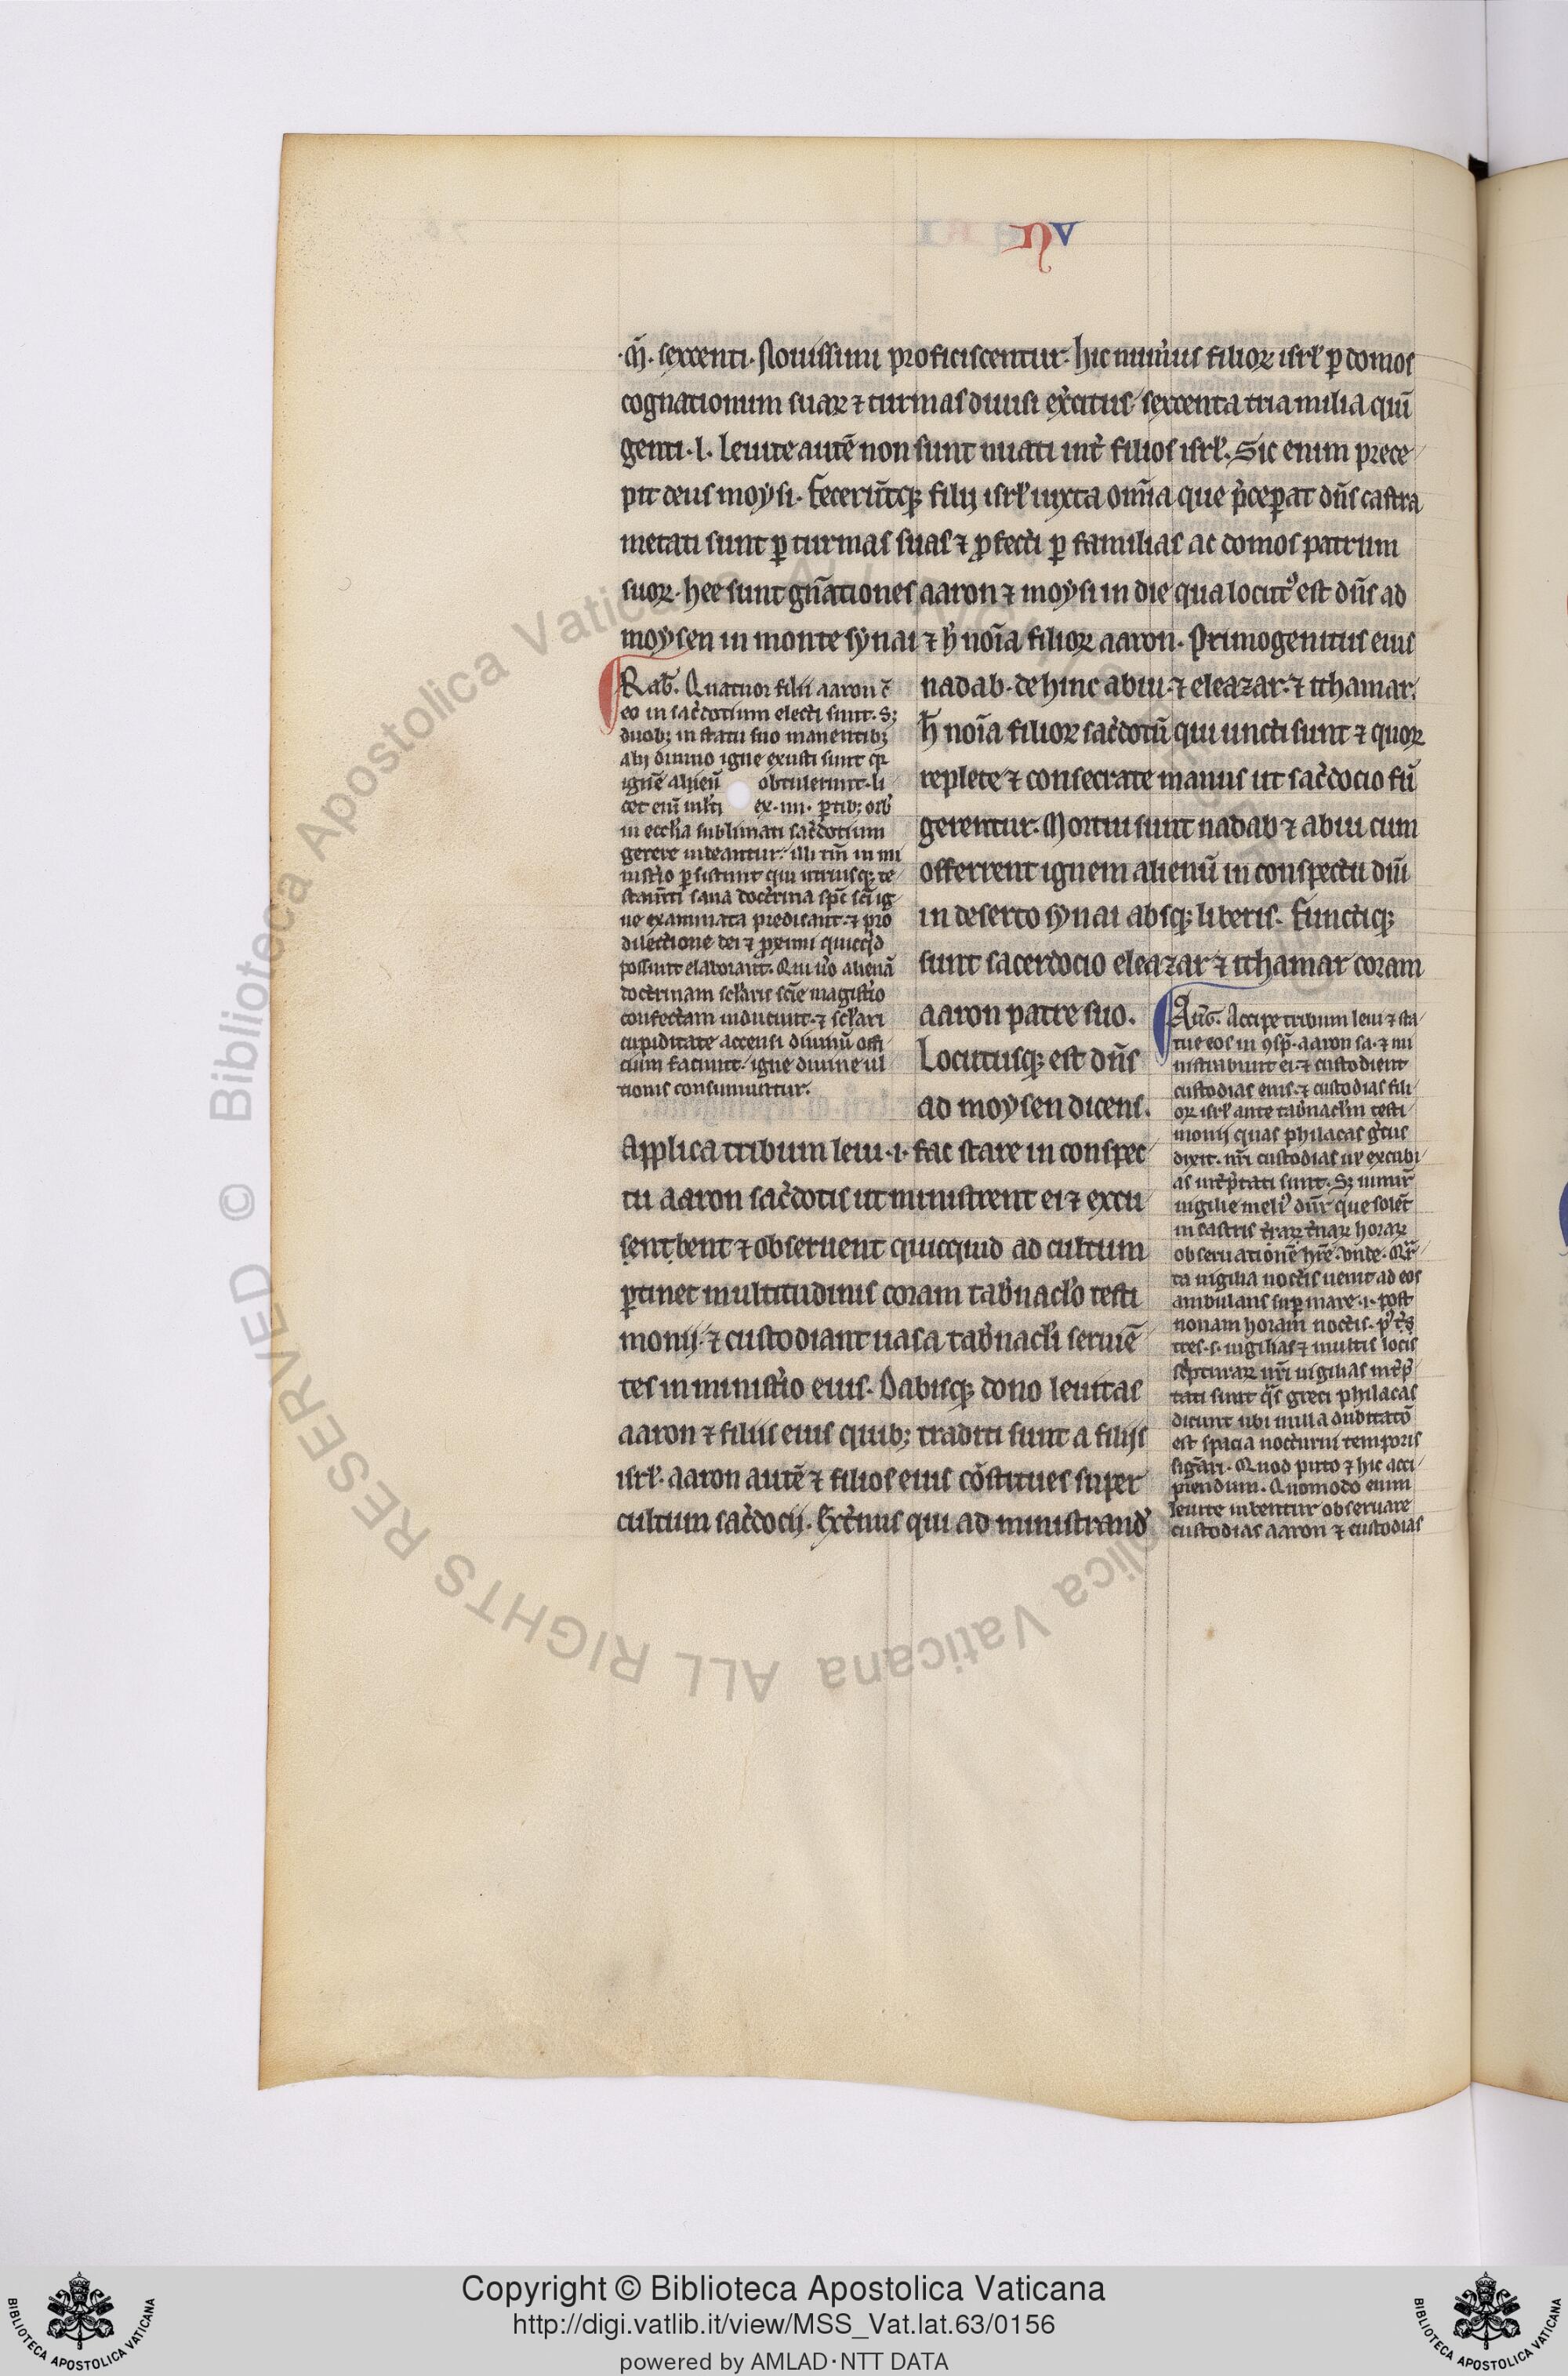 NV
·m̄· sexcenti· Nouissimi proficiscentur· hic num̄us filioꝝ isrl̄ ꝑ domos
cognationum suaꝝ ⁊ turmas diuisi ex̄citus· sexcenta tria milia quī
genti·l· Leuite autē non sunt nūati int̄ filios isrl̄· Sic enim prece
pit deus moysi· fecer̄tqꝫ filij isrl̄ iuxta om̄ia que p̄ceꝑat dn̄s castra
metati sunt ꝑ turmas suas ⁊ ꝓfecti ꝑ familias ac domos patrum
suoꝝ· hee sunt gn̄ationes aaron ⁊ moysi in die qua locutꝰ est dn̄s ad
moysen in monte synai ⁊ h̄ noīa filioꝝ aaron· Primogenitus eius
nadab· dehinc abiu· ⁊ eleazar· ⁊ ithamar·
h̄ noīa filioꝝ sac̄dotū qui uncti sunt ⁊ quoꝝ
replete ⁊ consecrate manus ut sac̄docio fū
gerentur· Mortui sunt nadab ⁊ abiu cum
offerrent ignem alienū in conspectu dn̄i
in deserto synai absqꝫ liberis· functiqꝫ
sunt sacerdocio eleazar ⁊ ithamar coram
aaron patre suo·
Locutusqꝫ est dn̄s
ad moysen dicens·
Applica tribum leui·i· fac stare in conspec
tu aaron sac̄dotis ut ministrent ei ⁊ excu
sent bent ⁊ obseruent quicquid ad cultum
ꝑtinet multitudinis coram tab̄nacl̄o testi
monij· ⁊ custodiant uasa tab̄nacl̄i seruiē
tes in minist̄io eius· Dabisqꝫ dono leuitas
aaron ⁊ filiis eius quibꝫ traditi sunt a filijs
isrl̄· aaron autē ⁊ filios eius cōstitues super
cultum sac̄docij· Ext̄nus qui ad ministrand̄
Rab̄· Quatuor filii aaron c̄
eo in sac̄dotium electi sunt· Sꝫ
duobꝫ in statu suo manentibꝫ
alij diuino igne exusti sunt qꝛ
ignē alienū obtulerunt· li
cet enī ml̄ti ex·iiii· ꝑtibꝫ orb̄
in eccl̄ia sublimati sac̄dotium
gerere uideantur· illi tn̄ in mi
nist̄io ꝑsistunt qui utriusqꝫ te
stam̄ti sana doct̄ina sp̄c sc̄i ig
ne examinata predicant· ⁊ pro
dilectione dei ⁊ ꝓximi quicq̄d
possunt elaborant· Qui ūo alienā
doct̄inam scl̄aris scīe magist̄io
confectam inducunt· ⁊ scl̄ari
cupiditate accensi diuinū offi
cium faciunt· igne diuine ul
tionis consumuntur·
Auḡ· Accipe tribum leui ⁊ sta
tue eos in ꝯsp̄· aaron sa· ⁊ mi
nistrabunt ei· ⁊ custodient
custodias eius· ⁊ custodias fili
oꝝ isrl̄ ante tab̄nacl̄m testi
monij quas philacas ḡcus
dixit· nr̄i custodias ur̄ excubi
as int̄p̄tati sunt· Sꝫ mir̄
uigilie melꝰ dn̄r que solēt
in castris t̄naꝝ horaꝝ
obseruationē hr̄e· vnde· Qr̄
ta uigilia noctis uenit ad eos
ambulans supꝑ mare·i· post
nonam horam noctis· pꝰ t̄s
tres·s· uigilias ⁊ multis locis
sc̄pturaꝝ nr̄i uigilias int̄p̄
tati sunt q̄s greci philacas
dicunt ubi nulla dubitatō
est spacia nocturni temporis
siḡari· Quod puto ⁊ hic acci
piendum· Quomodo enim
leuite iubentur obseruare
custodias aaron ⁊ custodias
Copyright © Biblioteca Apostolica Vaticana
http://digi.vatlib.it/view/MSS_Vat.lat.63/0156
powered by AMLAD·NTT DATA